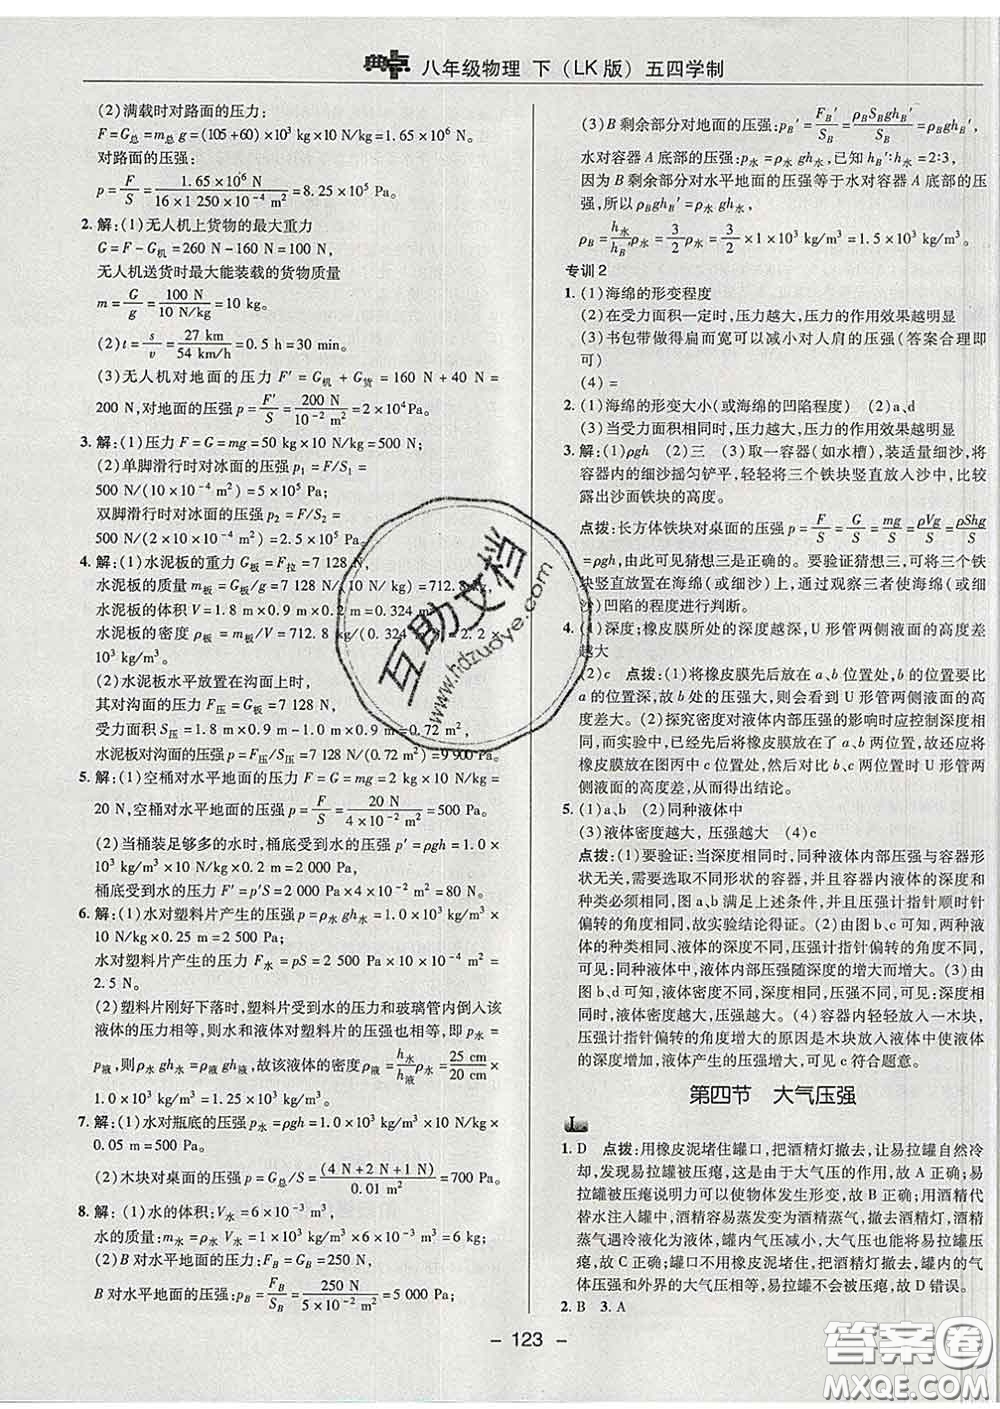 典点 八年级物理 下（LK版）五四学制
(2)满载时对路面的压力：
F=G总=m总 g=(105+60)×10³ kg×10 N/kg=1.65×10⁶ N。
对路面的压强：
p=F/S=1.65×10⁶ N/16×1 250×10⁻⁴ m²=8.25×10⁵ Pa。
2. 解：(1)无人机上货物的最大重力
G=F-G机=260 N-160 N=100 N，
无人机送货时最大能装载的货物质量
m=G/g=100 N/10 N/kg=10 kg。
(2)t=s/v=27 km/54 km/h=0.5 h=30 min。
(3)无人机对地面的压力 F′=G机+G货=160 N+40 N=
200 N，对地面的压强 p=F′/S=200 N/10⁻² m²=2×10⁴Pa。
3. 解：(1)压力 F=G=mg=50 kg×10 N/kg=500 N；
(2)单脚滑行时对冰面的压强 p₁=F/S₁=
500 N/(10×10⁻⁴ m²)=5×10⁵ Pa；
双脚滑行时对冰面的压强 p₂=F/S₂=
500 N/(2×10×10⁻⁴ m²)=2.5×10⁵ Pa。
4. 解：(1)水泥板的重力 G板=F拉=7 128 N，
水泥板的质量 m板=G板/g=7 128 N/(10 N/kg)=712.8
水泥板的体积 V=1.8 m×0.9 m×0.2 m=0.324 m³
水泥板的密度 ρ板=m板/V=712.8 kg/(0.324 =2.2×
10³ kg/m³。
(2)水泥板水平放置在沟面上时，
其对沟面的压力 F压=G板=7 128 N，
受力面积 S压=1.8 m×0.9 m-1.8 m×0.5 m=0.72 m²，
水泥板对沟面的压强 p=F压/S压=7 128 N/(0.72 m²)=9 900 Pa。
5. 解：(1)空桶对水平地面的压力 F=G=mg=2 kg×10 N/kg=
20 N，空桶对水平地面的压强 p=F/S=20 N/4×10⁻² m²=500 Pa。
(2)当桶装足够多的水时，桶底受到水的压强 p′=ρgh=1.0×
10³kg/m³×10 N/kg×0.2 m=2 000 Pa，
桶底受到水的压力 F′=p′S=2 000 Pa×4×10⁻² m²=80 N。
6. 解：(1)水对塑料片产生的压强 p水=ρ水 gh水=1.0×10³ kg/m³×
10 N/kg×0.25 m=2 500 Pa，
水对塑料片产生的压力 F水=pS=2 500 Pa×10×10⁻⁴ m²=
2.5 N。
(2)塑料片刚好下落时，塑料片受到水的压力和玻璃管内倒入该
液体的压力相等，则水和液体对塑料片的压强也相等，即 p水=
p液，则 ρ水 gh水=ρ液 gh液，故该液体的密度 ρ液=h水/h液 ρ水=25 cm/20 cm×
1.0×10³ kg/m³=1.25×10³ kg/m³。
7. 解：(1)水对瓶底的压强 p水=ρgh=1.0×10³ kg/m³×10 N/kg×
0.12 m=1 200 Pa；
(2)木块对桌面的压强 p=G总/S=(4 N+2 N+1 N)/0.01 m²=700 Pa。
8. 解：(1)水的体积：V水=6×10⁻³ m³，
水的质量：m水=ρ水 V水=1×10³ kg/m³×6×10⁻³ m³=6 kg；
(2)B 对水平地面的压力：FB=GB=250 N，
B 对水平地面的压强：pB=FB/SB=250 N/5×10⁻² m²=5 000 Pa；
(3)B 剩余部分对地面的压强：pB′=FB′/SB=ρBSBghB′/SB=ρBghB′
水对容器 A 底部的压强：p水=ρ水 gh水，已知 hB′∶h水=2∶3，
因为 B 剩余部分对水平地面的压强等于水对容器 A 底部的压
强，所以 ρBghB′=ρ水 gh水，
ρB=h水/hB′ ρ水=3/2ρ水=3/2×1×10³ kg/m³=1.5×10³ kg/m³。
专训2
1. (1)海绵的形变程度
(2)在受力面积一定时，压力越大，压力的作用效果越明显
(3)书包带做得扁而宽可以减小对人肩的压强(答案合理即
可)
(4)=
2. (1)海绵的形变大小(或海绵的凹陷程度) (2)a、d
(3)当受力面积相同时，压力越大，压力作用效果越明显
3. 解：(1)ρgh (2)三 (3)取一容器(如水槽)，装适量细沙，将
容器内的细沙摇匀铲平，轻轻将三个铁块竖直放入沙中，比较
露出沙面铁块的高度。
点拨：长方体铁块对桌面的压强 p=F/S=G/S=mg/S=ρVg/S=ρShg/S
=ρgh，由此可见猜想三是正确的。要验证猜想三，可将三个铁
块竖直放在海绵(或细沙)上，通过观察三者使海绵(或细
沙)凹陷的程度进行判断。
4. (1)深度；橡皮膜所处的深度越深，U 形管两侧液面的高度差
越大
(2)c 点拨：(1)将橡皮膜先后放在 a、b 位置处，b 的位置要比
a 的位置深，故 b 处的压强大，则会看到 U 形管两侧液面的高
度差大。(2)探究密度对液体内部压强的影响时应控制深度相
同，而实验中，已经将橡皮膜放在了 a、b 两位置，故还应再将
橡皮膜放在图丙中 c 位置处，比较 b、c 两处压强，即 U 形管两
侧液面的高度差，从而得出结论。
5. (1)a、b (2)同种液体中
(3)液体密度越大，压强越大 (4)c
点拨：(1)要验证：当深度相同时，同种液体内部压强与容器形
状无关，需要选取不同形状的容器，并且容器内液体的深度和
种类必须相同，图 a、b 满足上述条件，并且压强计指针顺时针
偏转的角度相同，故实验结论得出。(2)由图 b、c 可知，两种液
体的种类相同、液体的深度不同，压强计指针偏转的角度不同，
可见：同种液体，液体内部压强随深度的增大而增大。(3)由
图 b、d 可知，液体的深度相同，液体种类不同，压强不同，可见：
液体密度越大，压强越大。(4)容器内轻轻放入一木块，
压强计指针偏转的角度增大的原因是木块放入液体中使液体
的深度增加，液体产生的压强增大，可见 c 符合题意。
第四节 大气压强
1. D 点拨：用橡皮泥堵住罐口，把酒精灯撤去，让易拉罐自然冷
却，发现易拉罐被压瘪，这是由于大气压的作用，故 A 正确；易
拉罐被压瘪说明力可以使物体发生形变，故 B 正确；用酒精代
替水注入罐中，酒精易蒸发变为酒精蒸气，撤去酒精灯，酒精
蒸气遇冷液化为液体，罐内气压减小，在外界大气压作用下被压
瘪，故 C 正确；罐口不用橡皮泥堵住，把酒精灯撤去，罐内气
体压强和外界的大气压相等，易拉罐不会被压瘪，故 D 错误。
2. B 3. A
- 123 -
互助文档
www.hdzuoye.com
答案圈
MXQE.COM